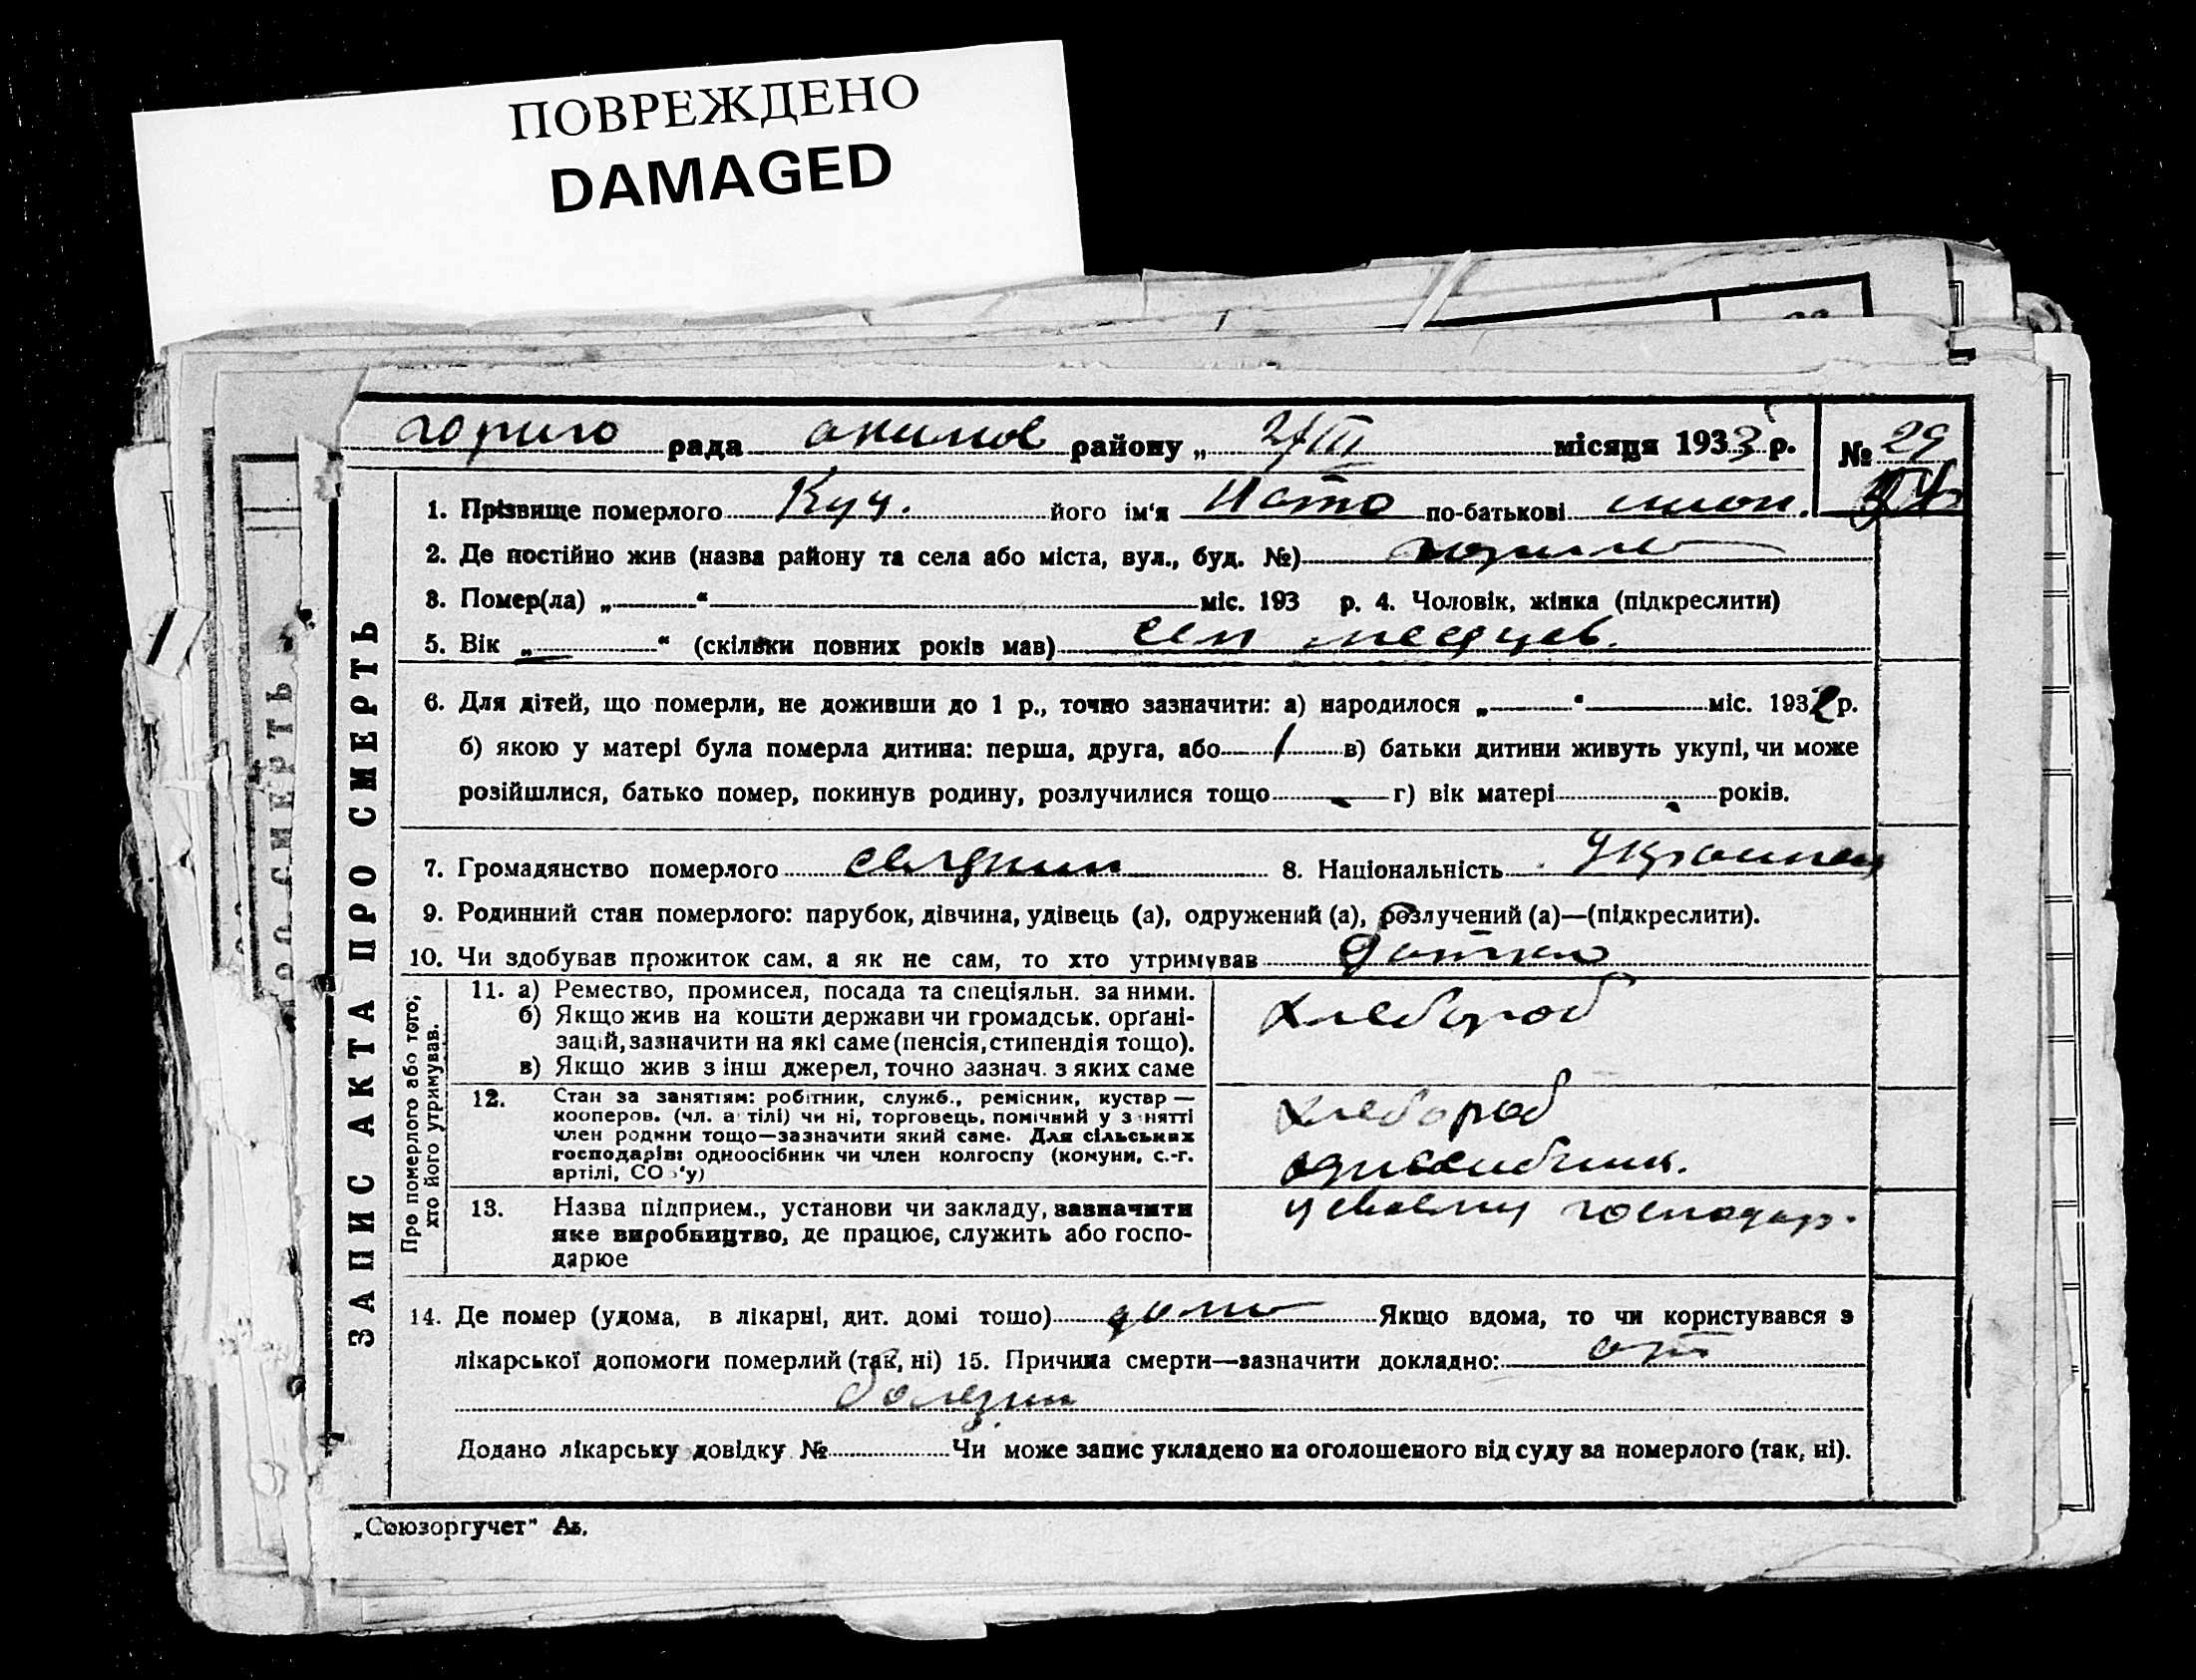 ПОВРЕЖДЕНО
DAMAGED
рада акимов району „ 27/III місяця 1933 р. № 29
1. Прізвище померлого Куч. його ім'я по-батькові
2. Де постійно жив (назва району та села або міста, вул., буд. №)
3. Помер(ла) „ “ міс. 193 р. 4. Чоловік, жінка (підкреслити)
5. Вік „ “ (скільки повних років мав) сем месяцев.
6. Для дітей, що померли, не доживши до 1 р., точно зазначити: а) народилося „ “ міс. 1932 р.
б) якою у матері була померла дитина: перша, друга, або 1 в) батьки дитини живуть укупі, чи може
розійшлися, батько помер, покинув родину, розлучилися тощо г) вік матері років.
7. Громадянство померлого 8. Національність Украинец
9. Родинний стан померлого: парубок, дівчина, удівець (а), одружений (а), розлучений (а)—(підкреслити).
10. Чи здобував прожиток сам, а як не сам, то хто утримував батько
ЗАПИС АКТА ПРО СМЕРТЬ
Про померлого або того,
хто його утримував.
11. а) Ремество, промисел, посада та спеціяльн. за ними.
б) Якщо жив на кошти держави чи громадськ. органі-
зацій, зазначити на які саме (пенсія, стипендія тощо).
в) Якщо жив з інш джерел, точно зазнач. з яких саме
хлебороб
12. Стан за занятіям: робітник, служб., ремісник, кустар—
кооперов. (чл. а тілі) чи ні, торговець, помічний у з нятті
член родини тощо—зазначити який саме. Для сільських
господарів: одноосібник чи член колгоспу (комуни, с.-г.
артілі, СО у)
хлебороб
13. Назва підприєм., установи чи закладу, зазначити
яке виробництво, де працює, служить або госпо-
дарює
у своему господар.
14. Де помер (удома, в лікарні, дит. домі тощо) дома Якщо вдома, то чи користувався з
лікарської допомоги померлий (так, ні) 15. Причина смерти—зазначити докладно: от
болезни
Додано лікарську довідку № Чи може запис укладено на оголошеного від суду за померлого (так, ні).
„Союзоргучет“ Аз.
ПРО СМЕРТЬ